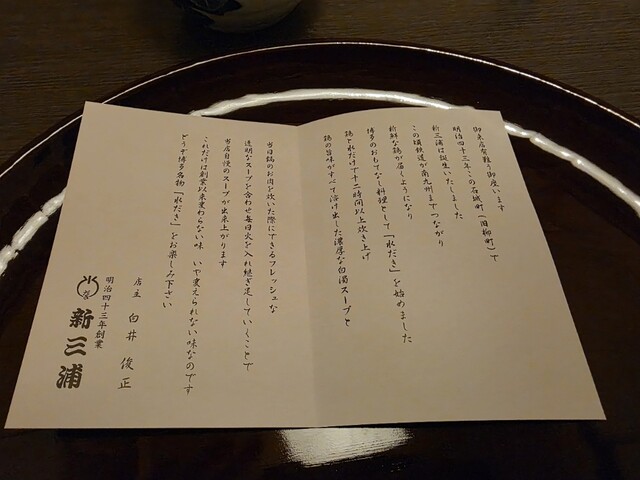 御来店有難う御座います
明治四十三年この石城町（旧柳町）で
新三浦は誕生いたしました
この頃鉄道が南九州までつながり
新鮮な鶏が届くようになり
博多のおもてなし料理として「水だき」を始めました
鶏と水だけで十二時間以上炊き上げ
鶏の旨味がすべて溶け出した濃厚な白濁スープと
当日鶏のお肉を炊いた際にできるフレッシュな
透明なスープを合わせ毎日火を入れ継ぎ足していくことで
当店自慢のスープが出来上がります
これだけは創業以来変わらない味 いや変えられない味なのです
どうぞ博多名物「水だき」をお楽しみ下さい
店主 白井 俊正
明治四十三年創業
新三浦